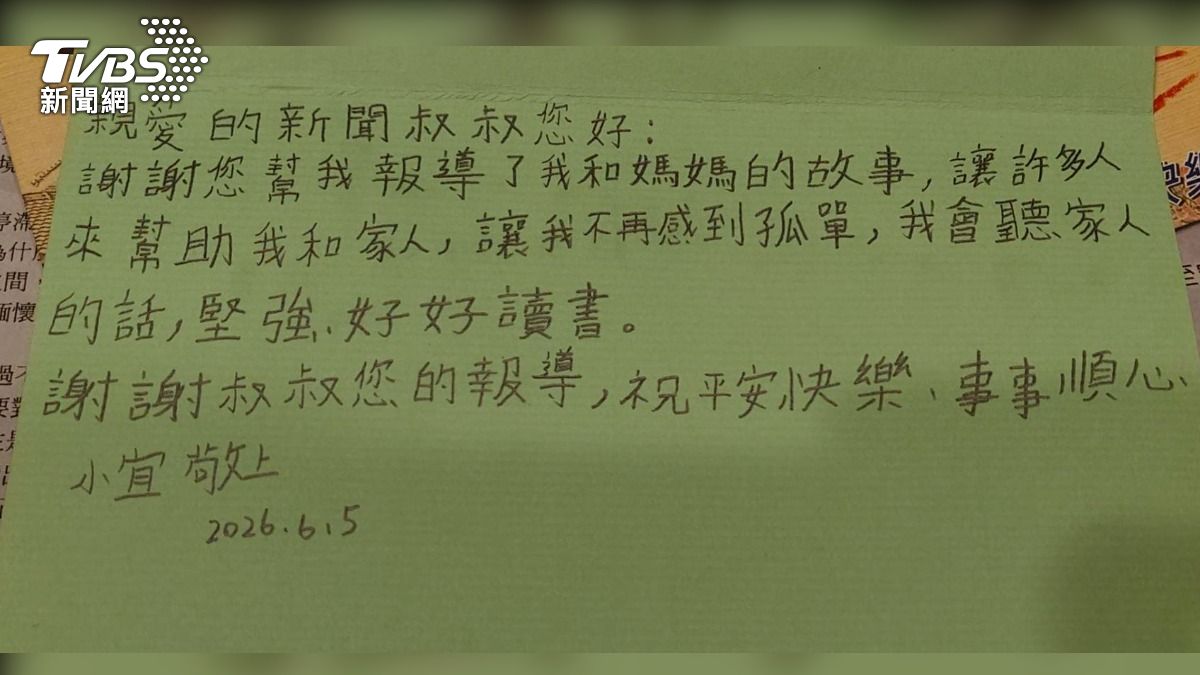 TVBS
新聞網
親愛的新聞叔叔您好:
謝謝您幫我報導了我和媽媽的故事,讓許多人
來幫助我和家人,讓我不再感到孤單,我會聽家人
的話,堅強、好好讀書。
謝謝叔叔您的報導,祝平安快樂、事事順心、
小宜 敬上
2026.6.5